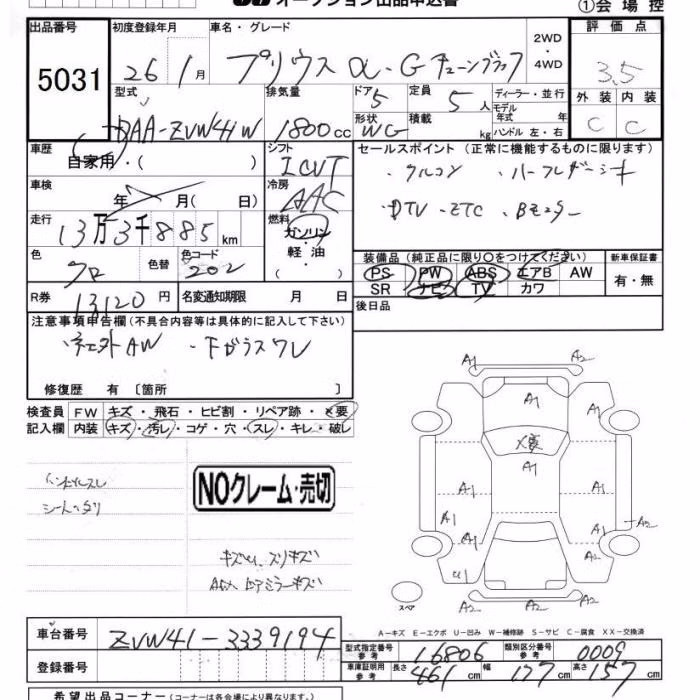 オークション出品申込書
①会場控
出品番号 初度登録年月 車名・グレード 2WD・4WD 評価点
5031 26 1月 プリウス α-G チューンブラック 3.5
型式 排気量 ドア 定員 ディーラー・並行 外装 内装
DAA-ZVW41W 1800cc 5 5人 モデル年式 年 C C
形状 積載 ハンドル 左・右
WG kg
車歴 シフト セールスポイント (正常に機能するものに限ります)
自家用・( ) ICVT ・クルコン ・ハーフレザーシート
車検 冷房
年 月( 日) AAC ・DTV ・ETC ・Bモニター
走行 燃料
13万3千885km ガソリン・軽油
色 色替 色コード ( ) 装備品 (純正品に限り○をつけてください) 新車保証書
クロ 202 PS PW ABS エアB AW 有・無
R券 13120円 名変通知期限 月 日 SR ナビ TV カワ
後日品
注意事項申告欄(不具合内容等は具体的に記入して下さい)
・ネエ外AW ・下ガラスワレ
修復歴 有〔箇所 〕
検査員 FW キズ・飛石・ヒビ割・リペア跡・×要
記入欄 内装 キズ・汚レ・コゲ・穴・スレ・キレ・破レ
ハンドルスレ
シートヘタリ
NOクレーム・売切
キズU、スリキズ
ミラーキズ
A1 A2
A1
A1
×要
A1
A1 A1
A1 A2
A1 A1
U1 A1
A2 A2
スペア
A-キズ E-エクボ U-凹み W-補修跡 S-サビ C-腐食 XX-交換済
車台番号 ZVW41-3339194
型式指定番号 参考 16806 類別区分番号 参考 0009
登録番号
車庫証明用 参考 長さ 461cm 幅 177cm 高さ 157cm
希望出品コーナー(コーナーは各会場により異なります。)